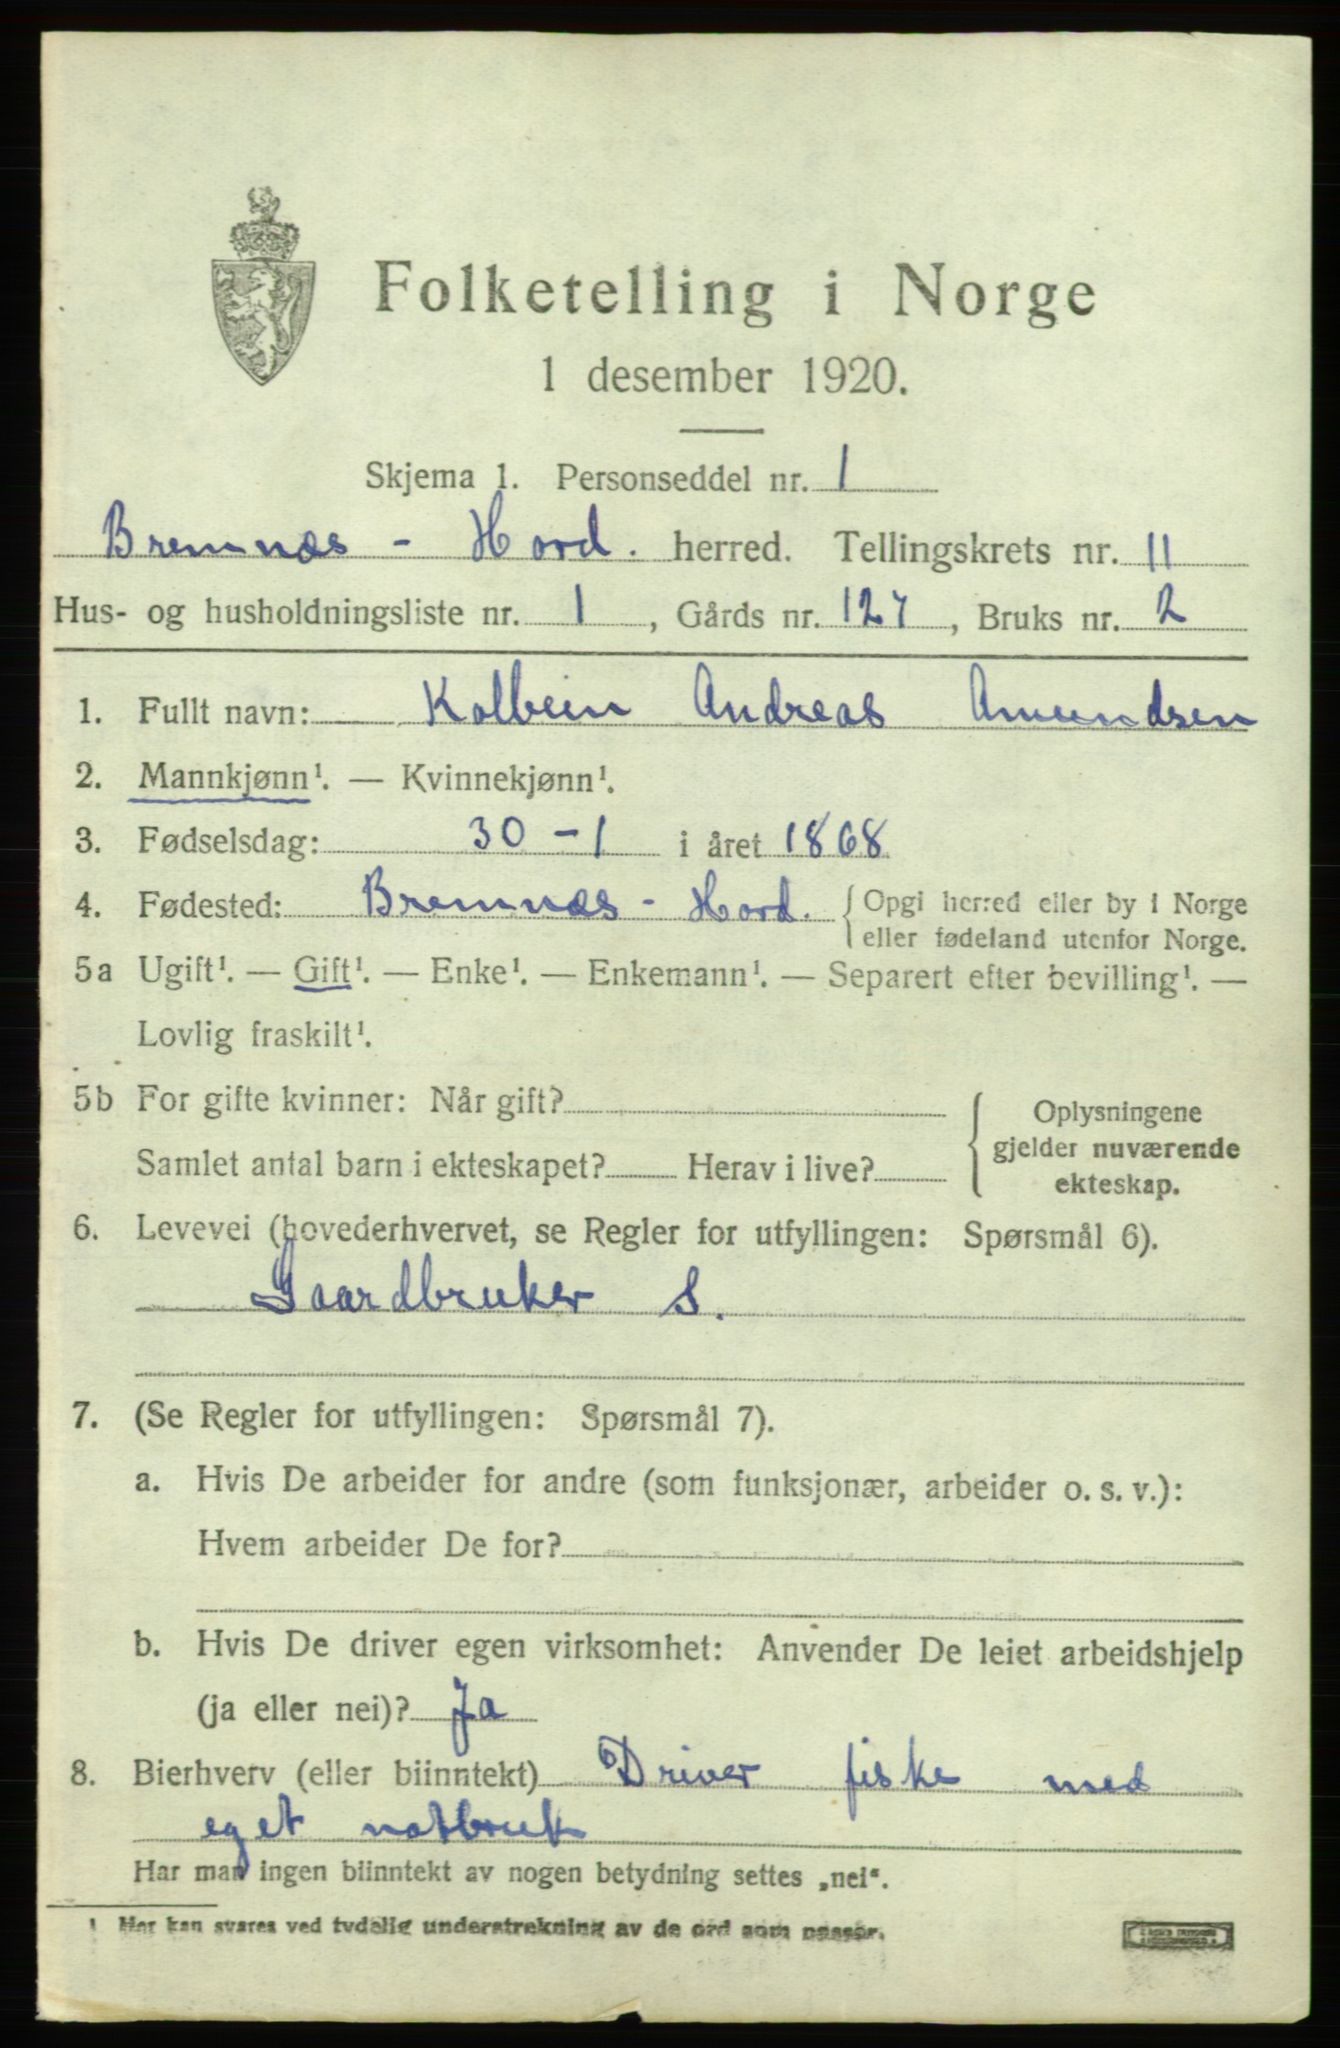 Folketelling i Norge
1 desember 1920.
Skjema 1. Personseddel nr. 1
Bremnæs - Hord. herred. Tellingskrets nr. 11
Hus- og husholdningsliste nr. 1, Gårds nr. 127, Bruks nr. 2
1. Fullt navn: Kolbein Andreas Amundsen
2. Mannkjønn¹. — Kvinnekjønn¹.
3. Fødselsdag: 30 - 1 i året 1868
4. Fødested: Bremnæs - Hord. { Opgi herred eller by i Norge
eller fødeland utenfor Norge.
5a Ugift¹. — Gift¹. — Enke¹. — Enkemann¹. — Separert efter bevilling¹. —
Lovlig fraskilt¹.
5b For gifte kvinner: Når gift?
Samlet antal barn i ekteskapet? Herav i live?
{ Oplysningene
gjelder nuværende
ekteskap.
6. Levevei (hovederhvervet, se Regler for utfyllingen: Spørsmål 6).
Gaardbruker S.
7. (Se Regler for utfyllingen: Spørsmål 7).
a. Hvis De arbeider for andre (som funksjonær, arbeider o. s. v.):
Hvem arbeider De for?
b. Hvis De driver egen virksomhet: Anvender De leiet arbeidshjelp
(ja eller nei)? Ja
8. Bierhverv (eller biinntekt) Driver fiske med
eget notbruk
Har man ingen biinntekt av nogen betydning settes „nei“.
¹ Her kan svares ved tydelig understrekning av de ord som passer.